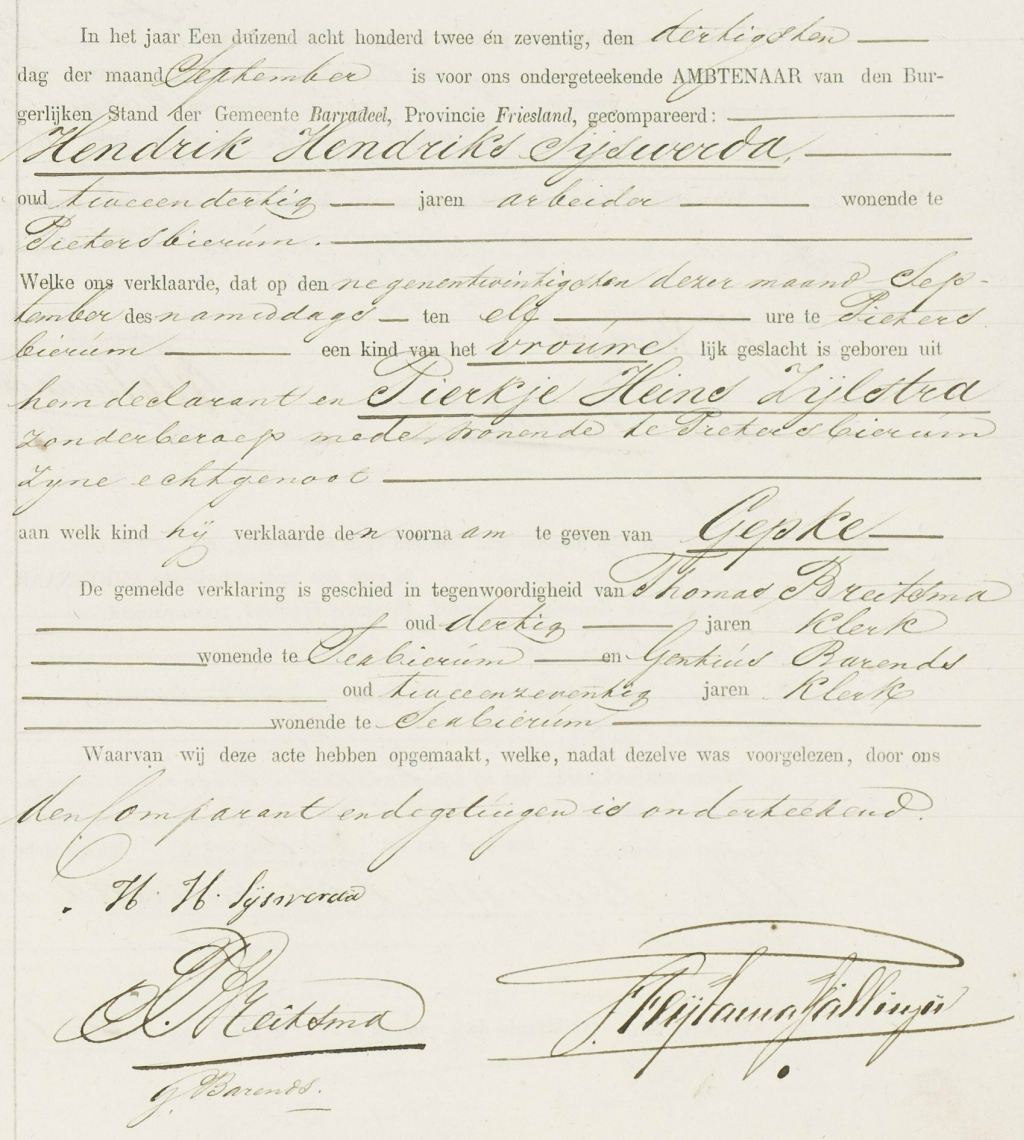 In het jaar Een duizend acht honderd twee en zeventig, den dertigsten
dag der maand September is voor ons ondergeteekende AMBTENAAR van den Bur-
gerlijken Stand der Gemeente Barradeel, Provincie Friesland, gecompareerd:
Hendrik Hendriks Sijswerda,
oud tweeendertig jaren arbeider wonende te
Pietersbierúm.
Welke ons verklaarde, dat op den negenentwintigsten dezer maand Sep-
tember des namiddags ten elf ure te Pieters
bierúm een kind van het vroúwe lijk geslacht is geboren uit
hem declarant en Pierkje Heins Zijlstra
zonder beroep mede wonende te Pietersbierúm
zyne echtgenoot
aan welk kind hij verklaarde den voornaam te geven van Gepke
De gemelde verklaring is geschied in tegenwoordigheid van Thomas Breitsma
oud dertig jaren klerk
wonende te Sexbierúm en Gentiús Barends
oud tweeenzeventig jaren klerk
wonende te Sexbierúm
Waarvan wij deze acte hebben opgemaakt, welke, nadat dezelve was voorgelezen, door ons
den Comparant en de getúigen is onderteekend.
H. H. Sijswerda
T. Breitsma
G. Barends.